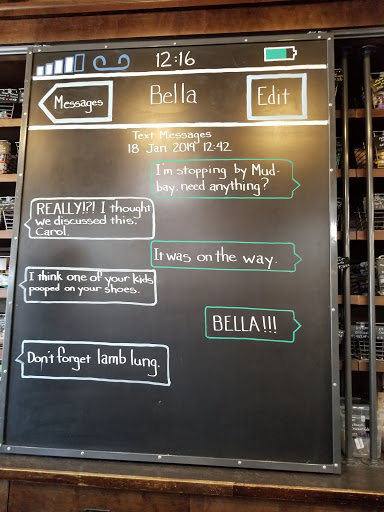 12:16
Messages
Bella
Edit
Text Messages
18 Jan 2019 12:42
I'm stopping by Mud-
bay. need anything?
REALLY!?! I thought
we discussed this.
Carol.
It was on the way.
I think one of your kids
pooped on your shoes.
BELLA!!!
Don't forget lamb lung.